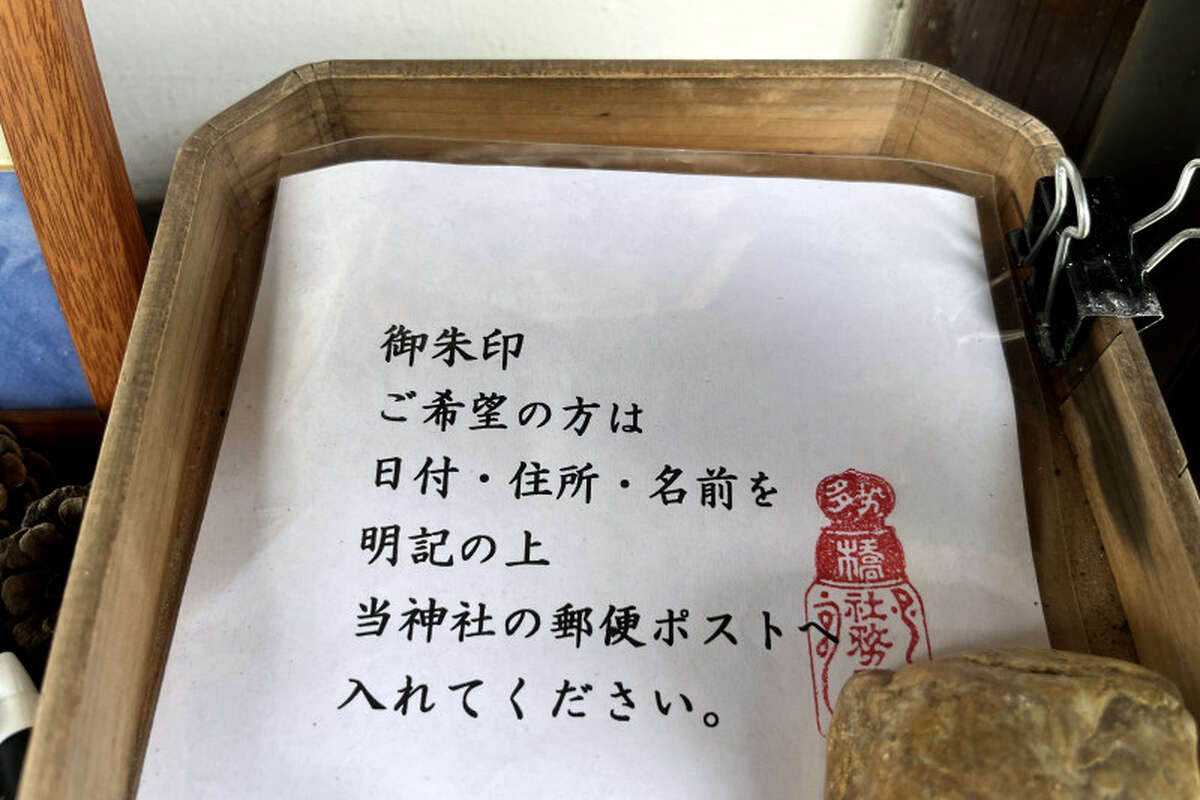 御朱印
ご希望の方は
日付・住所・名前を
明記の上
当神社の郵便ポストへ
入れてください。
橋
社務